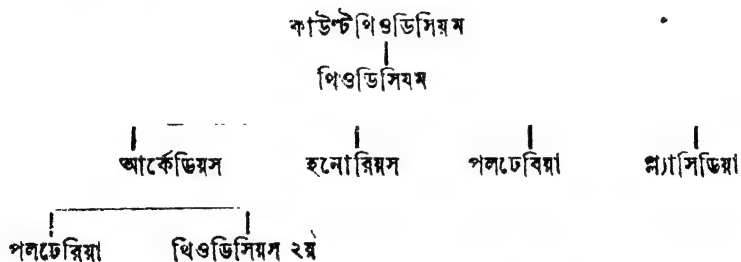 কাউণ্ট থিওডিসিয়ম
থিওডিসিযম
আর্কেডিয়স হনোরিয়স পলচেবিয়া প্ল্যাসিডিয়া
পলচেরিয়া থিওডিসিয়স ২য়